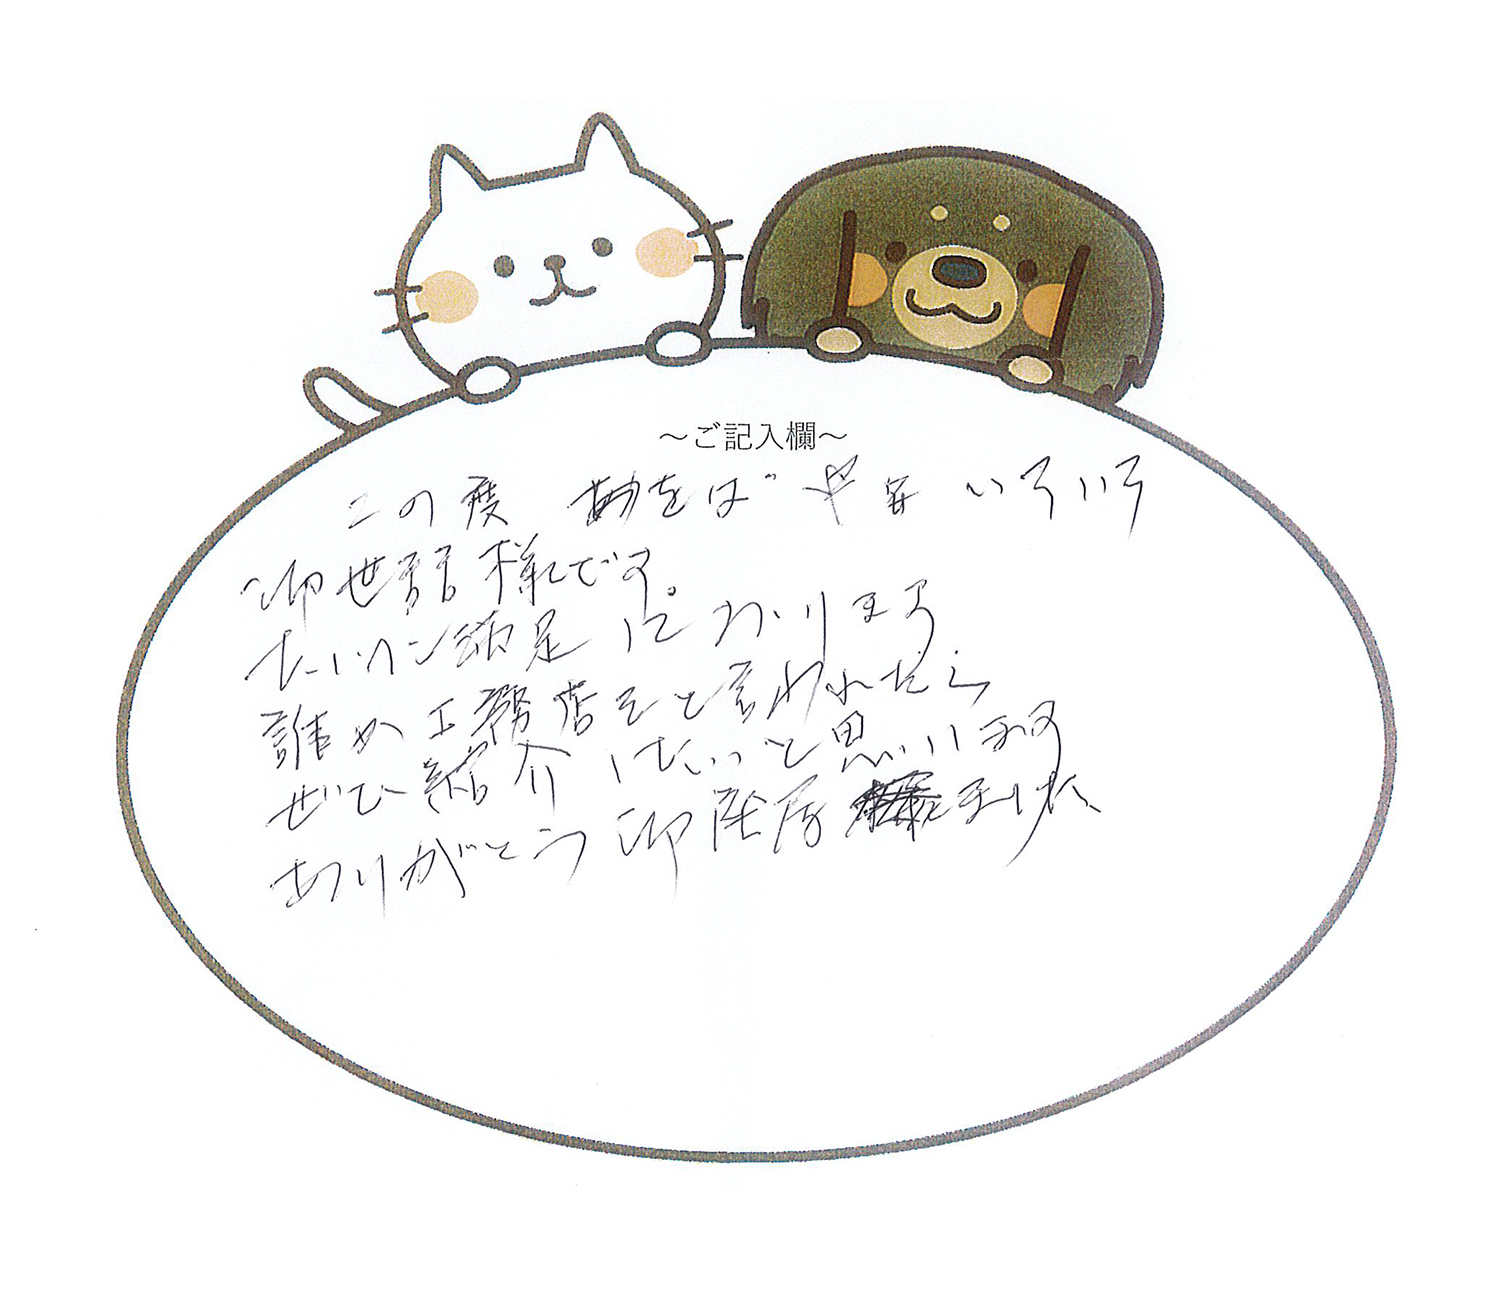 ～ご記入欄～
この度 をはじ いろいろ
御世話様です。
たいへん満足しております
誰か工務店をと言われたら
ぜひ紹介したいと思います
ありがとう御座居ました